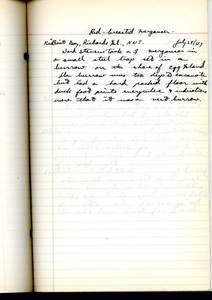 Red-breasted Merganser.
Kittigazuit Bay, Richards Isl., N.W.T. July 29/47
Jack Stevens took a ♀ merganser in
a small steel trap set in a
burrow on the shore of Egg Island.
The burrow was too deep to excavate
but had a hard packed floor with
duck foot prints everywhere & indications
were that it was a nest burrow.